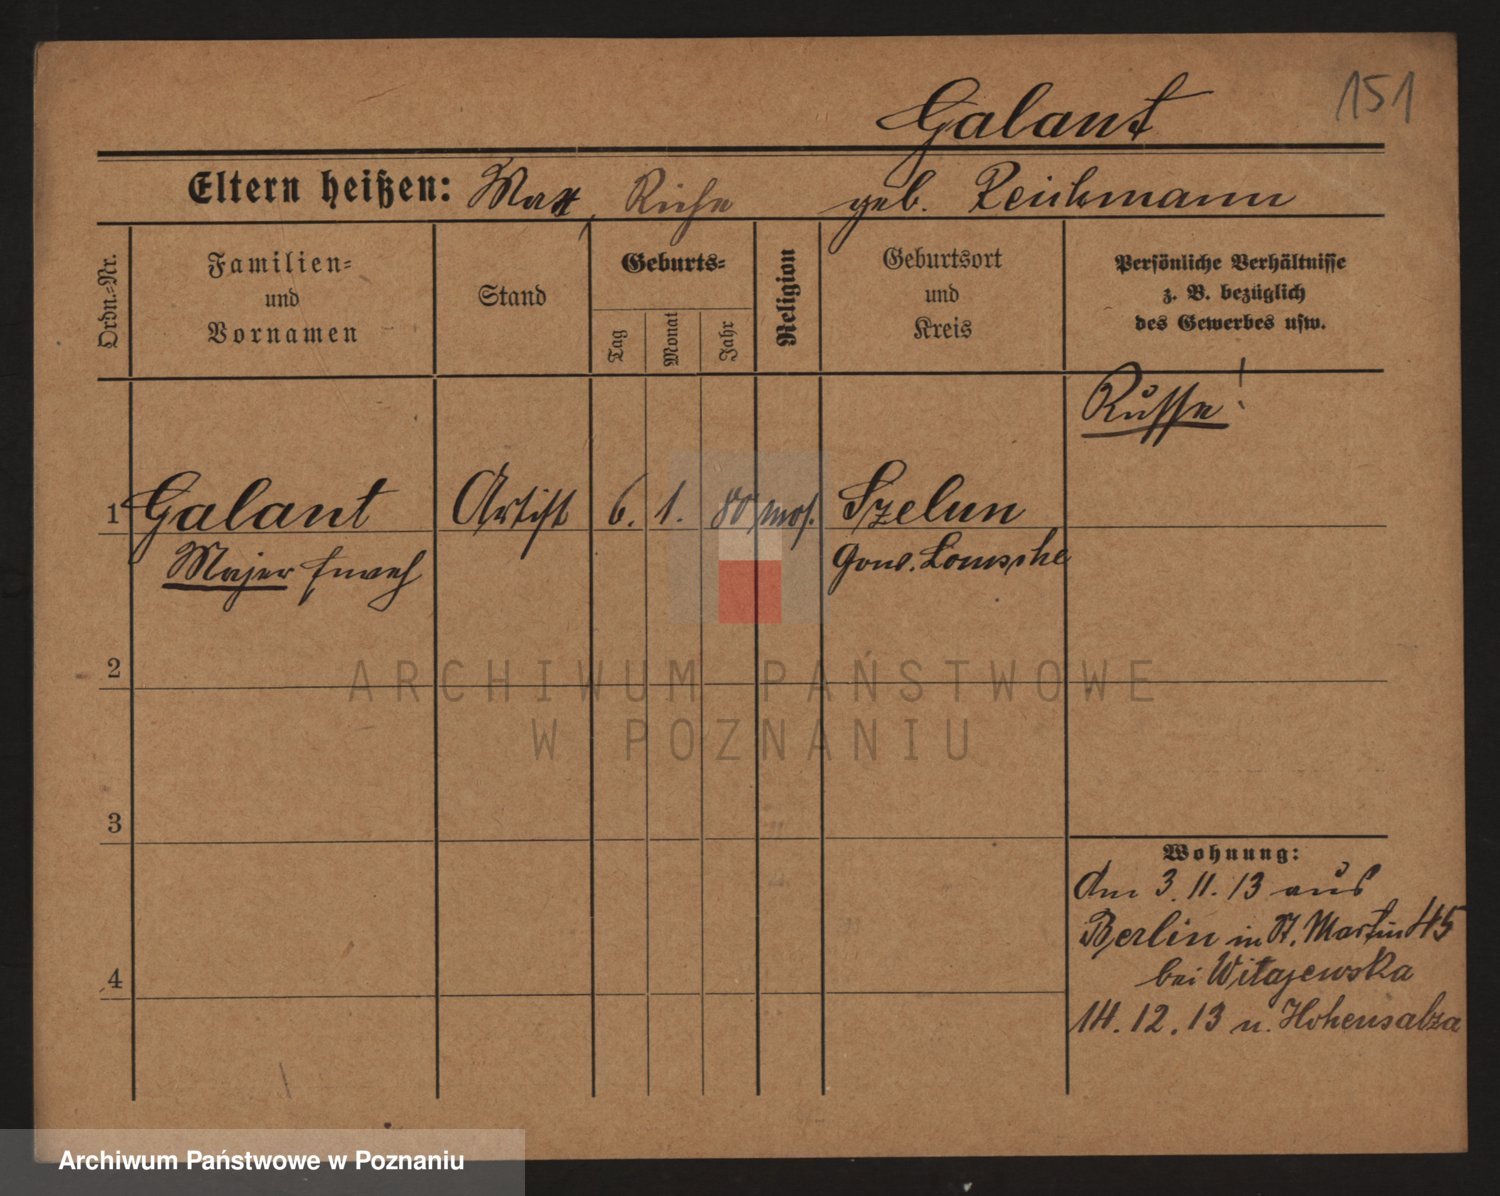 151
Galant
Eltern heißen: Max, Riche geb. Reichmann
Ordn.-Nr.
Familien-
und
Vornamen
Stand
Geburts-
Tag
Monat
Jahr
Religion
Geburtsort
und
Kreis
Persönliche Verhältnisse
z. B. bezüglich
des Gewerbes usw.
Russe!
1 Galant Artist 6. 1. 80 mos. Szelun
Majer Gouv. Lomsche
2
3
4
Wohnung:
Am 3.11.13 aus
Berlin in St. Martin 45
bei Witajewska
14.12.13 n. Hohensalza
ARCHIWUM PAŃSTWOWE
W POZNANIU
Archiwum Państwowe w Poznaniu